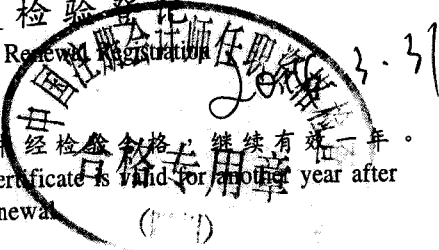 检验登记
Renewal Registration
中国注册会计师任职资格检
3.31
经检验合格，继续有效一年。
合格专用章
ertificate is valid for another year after
newal